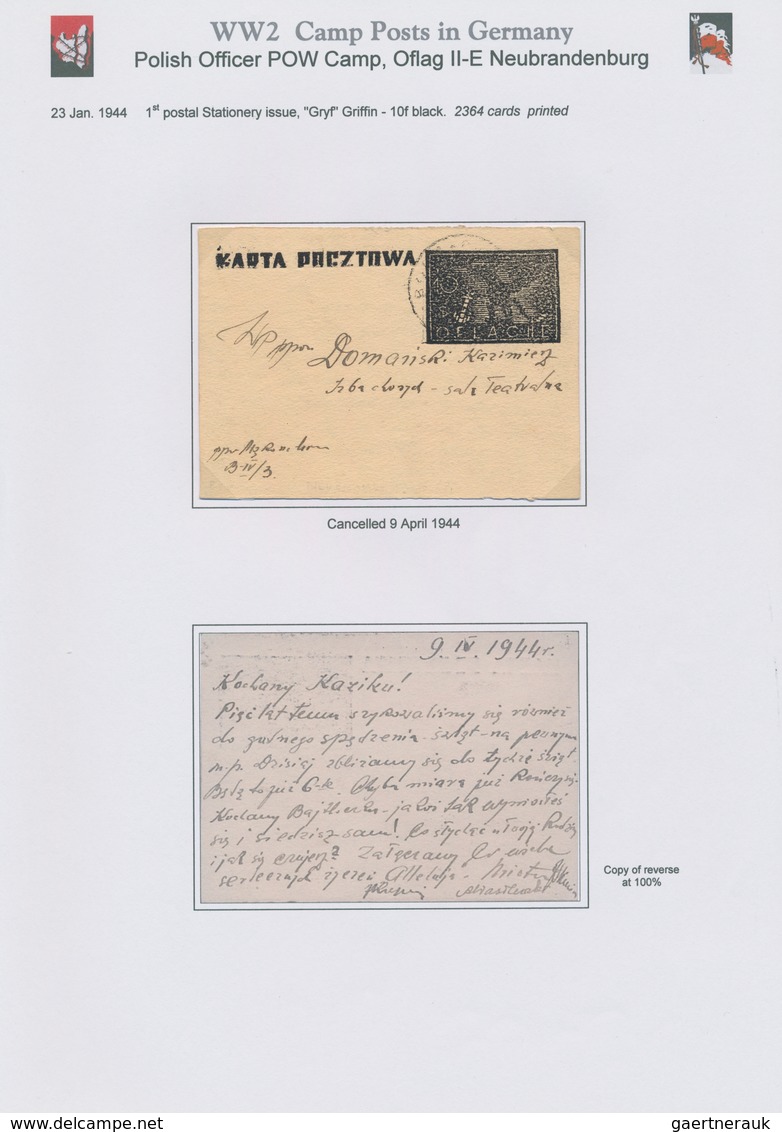 WW2 Camp Posts in Germany
Polish Officer POW Camp, Oflag II-E Neubrandenburg
23 Jan. 1944 1st postal Stationery issue, "Gryf" Griffin - 10f black. 2364 cards printed
KARTA POCZTOWA
10
OFLAG II E
WP ppor Domański Kazimierz
Izba chorych - sala Teatralna
ppor
B-IV/3.
Cancelled 9 April 1944
9.IV.1944r.
Kochany Kaziku!
Pięć lat temu szykowaliśmy się również
do godnego spędzenia świąt - na pewnym
m.p. Dzisiaj zbliżamy się do tychże świąt.
Będą to już 6-te. Chyba miara już
Kochany - jakoś tak wyniosłeś
się i siedzisz sam! Co słychać u Twojej Rodziny
i jak się czujesz? Załączamy Ci wiele
serdecznych życzeń Alleluja -
Copy of reverse
at 100%
gaertnerauk